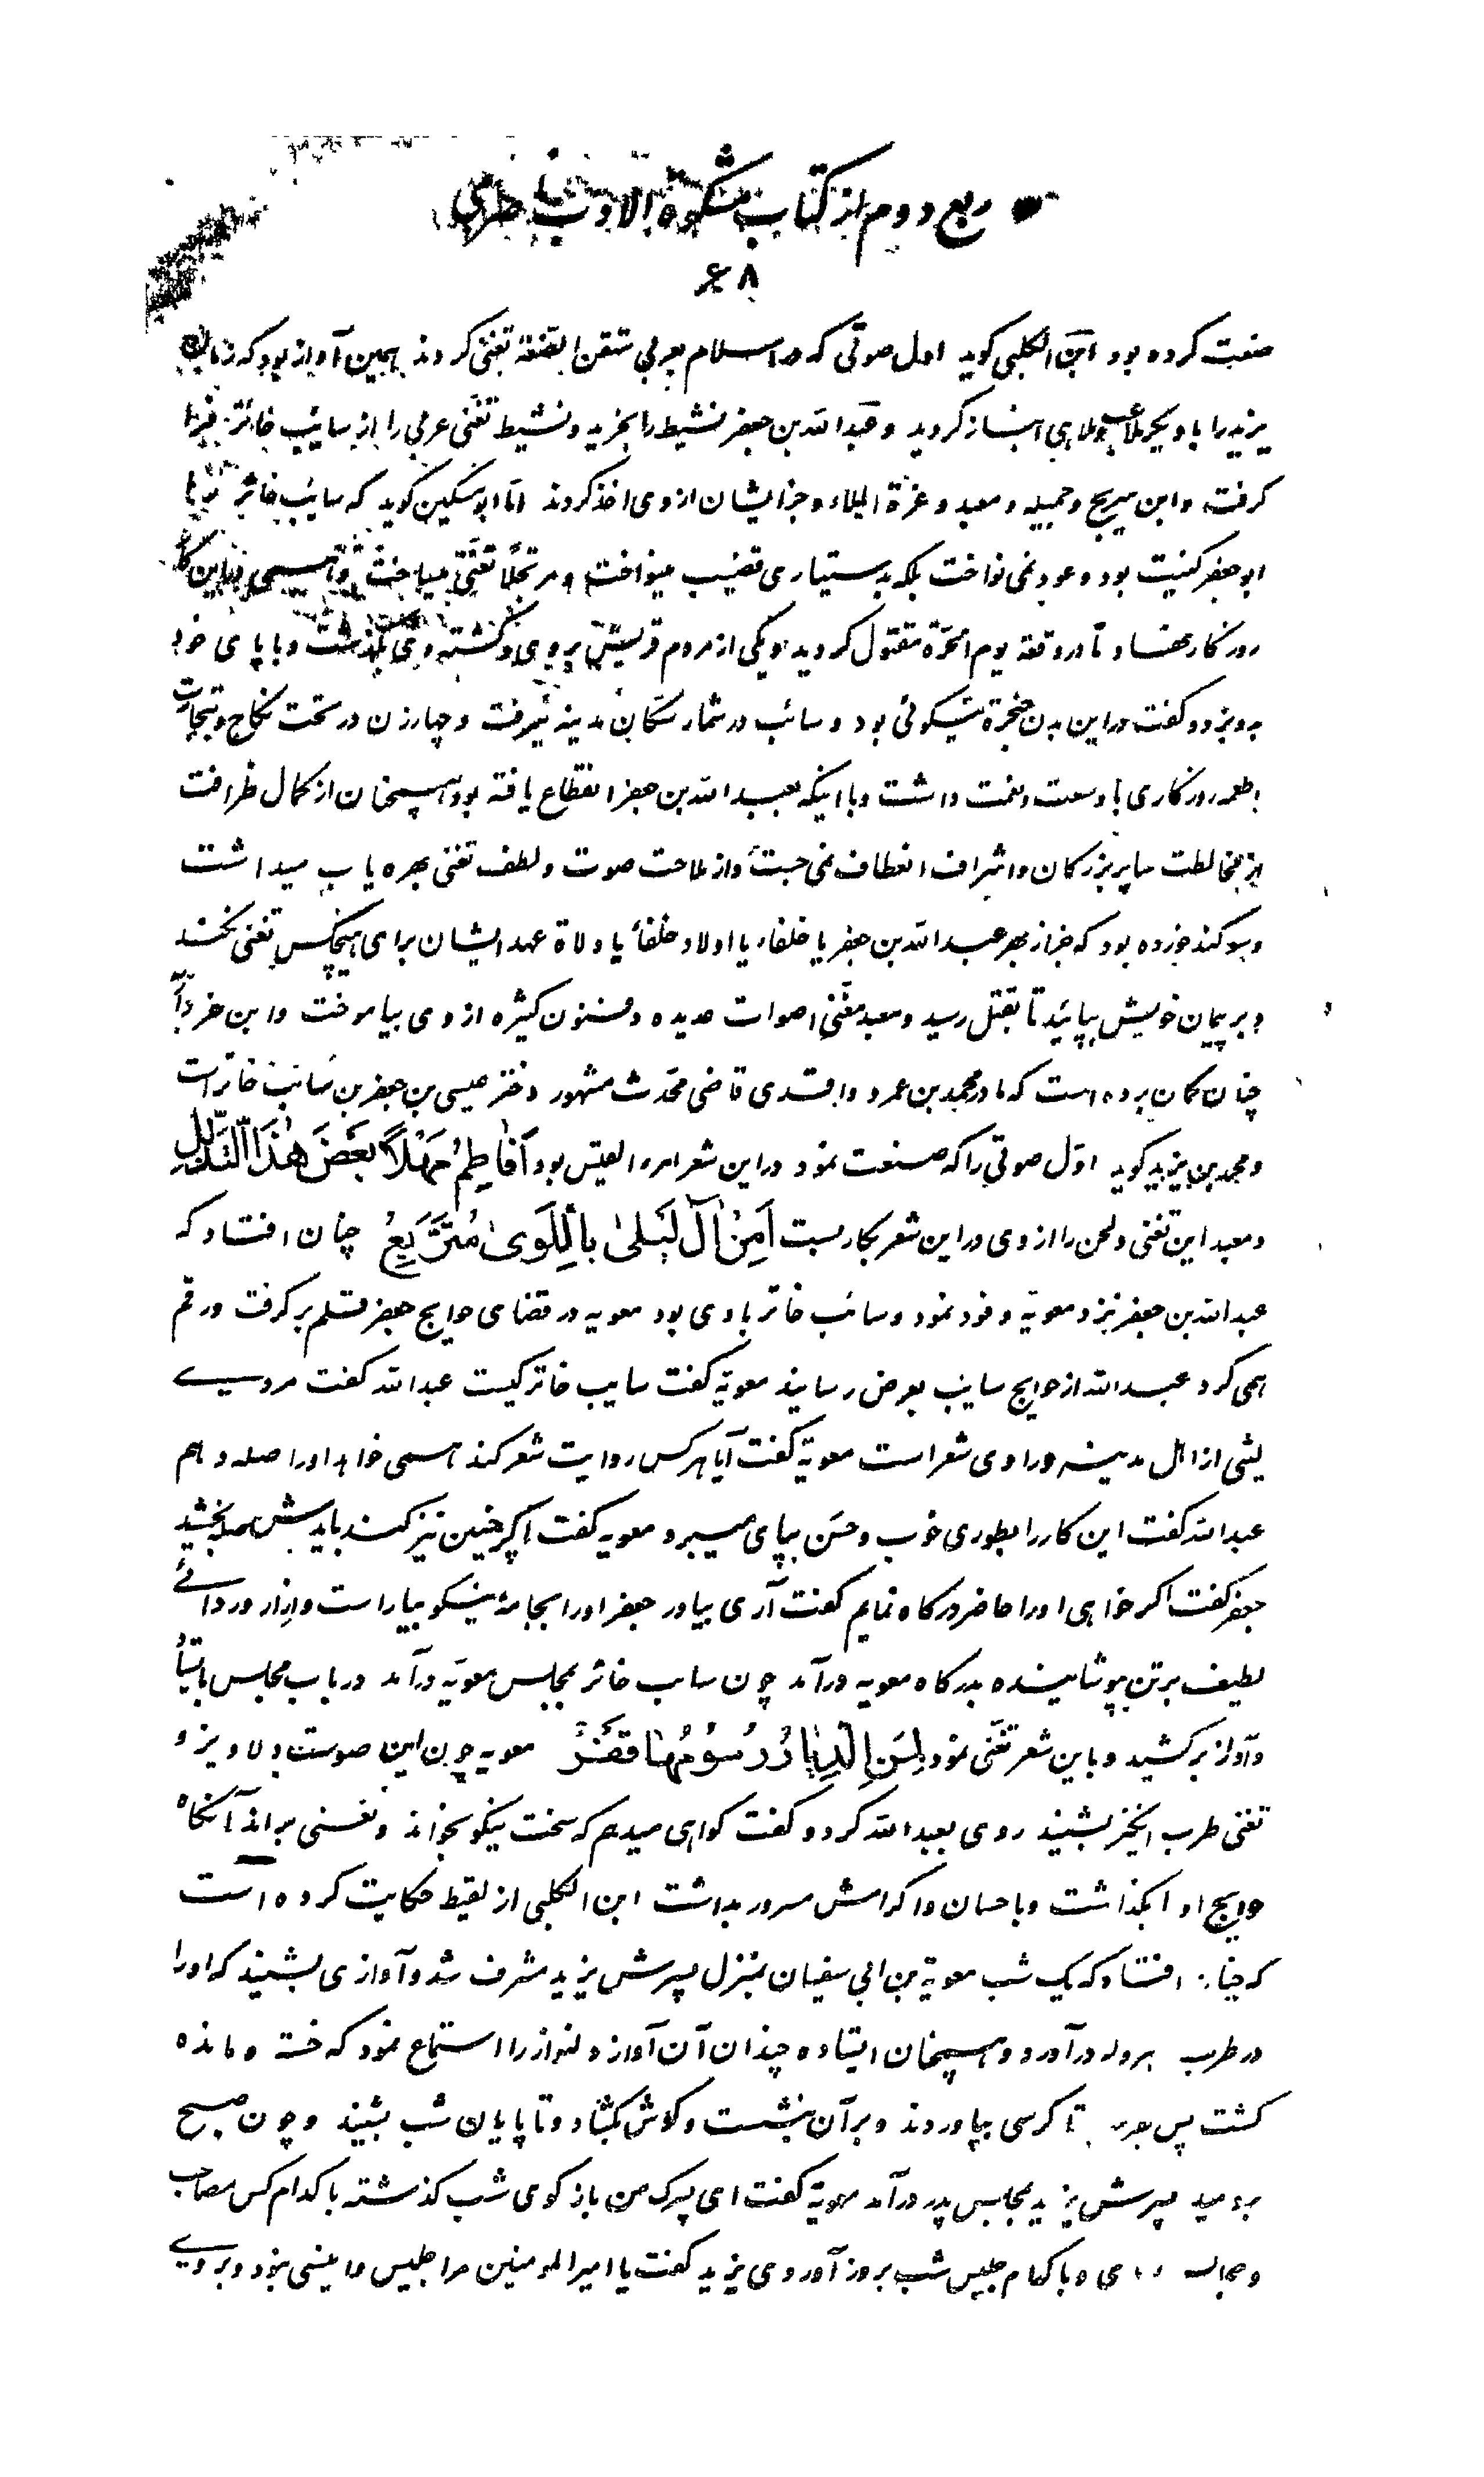 ربع دوم از کتاب مشکوة الادب ناصری
۶۸
صنعت کرده بود ابن الکلبی کوید اول صوتی که در اسلام بعربی متقن الصنعة تغنی کردند همین آواز بود که زمان
یزید را با دیگر ملاعب وملاهی انباز کردید و عبدالله بن جعفر نشیط را بخرید و نشیط تغنی عربی را از سائب خاثر
کرفت و ابن سریج و جمیله و معبد و عزة المیلاء و جز ایشان از وی اخذ کردند اما ابو مسکین کوید که سائب خاثر
ابو جعفر کنیت بود و عود نمی نواخت بلکه بدستیاری قضیب مینواخت و مرتجلا تغنی میساخت
روزکار نهاد تا در وقعه یوم الحرّة مقتول کردید و یکی از مردم قریش بر وی و کشته وی بگذشت و با پای خود
بدو بزد و کفت در این بدن حنجرۀ نیکوئی بود و سائب در شمار سکان مدینه میرفت و چهار زن در تحت نکاح و تجارت
طعمه روزکاری با وسعت و نعمت داشت و با اینکه بعبدالله بن جعفر انقطاع یافته بود همچنان از کمال ظرافت
از مخالطت سایر بزرکان و اشراف انعطاف نمی جست و از ملاحت صوت و لطف تغنی بهره یاب میداشت
و سوکند خورده بود که جز از بهر عبدالله بن جعفر یا خلفاء یا اولاد خلفأ یا ولاة عهد ایشان برای هیچکس تغنی نکند
و بر پیمان خویش بپائید تا بقتل رسید و معبد مغنی اصوات عدیده و فنون کثیره از وی بیاموخت و ابن خردادبه
چنان کمان برده است که مادر محمد بن عمرو واقدی قاضی محدّث مشهور دختر عیسی بن جعفر بن سائب خاثر است
و محمد بن یزید کوید اوّل صوتی را که صنعت نمود در این شعر امرء القیس بود أَفاطِمُ مَهْلاً بَعْضَ هٰذَا التَّدَلُّلِ
و معبد این تغنی و لحن را از وی در این شعر بکار بست أَمِنْ آلِ لَیْلیٰ بِاللِّوَیٰ مُتَرَبَّعُ چنان افتاد که
عبدالله بن جعفر نزد معویة وفود نمود و سائب خاثر با وی بود معویه در قضای حوایج جعفر قلم بر کرفت و رقم
همی کرد عبدالله از حوایج سایب بعرض رسانید معویّة کفت سایب خاثر کیست عبدالله کفت مردی
لیثی از اهل مدینه و راوی شعر است معویّة کفت آیا هرکس روایت شعر کند همی خواهد او را صله دهم
عبدالله کفت این کار را بطوری خوب و حسن بپای میبرد معویه کفت اکر چنین نیز کند بایدش صله بخشید
جعفر کفت اکر خواهی او را حاضر درکاه نمایم کفت آری بیاور جعفر او را بجامۀ نیکو بیاراست و ازار و ردائے
لطیف بر تن بپوشانیده بدرکاه معویه درآمد چون سایب خاثر بمجلس معویّه درآمد در باب مجلس بایستاد
و آواز برکشید و باین شعر تغنّی نمود لِمَنِ الدِّیارُ رُسُومُها قَفْرُ معویه چون این صوت دلاویز و
تغنی طرب انکیز بشنید روی بعبدالله کرد و کفت کواهی میدهم که سخت نیکو بخواند و نغمتی براند آنکاه
حوایج او را بکذاشت و باحسان و اکرامش مسرور بداشت ابن الکلبی از لقیط حکایت کرده است
که چنان افتاد که یک شب معویة بن ابی سفیان بمنزل پسرش یزید مشرف شد و آوازی بشنید که او را
در طرب بروله درآورد و همچنان ایستاده چندان آن آواز دلنواز را استماع نمود که خسته و مانده
کشت پس تا کرسی بیاوردند و برآن بنشست و کوش بکشاد و تا پایان شب بشنید و چون صبح
بردمید پسرش یزید بمجلس پدر درآمد معویّة کفت ای پسرک من باز کوی شب کذشته با کدام کس مصاحب
و مجالس ودی و با کدام جلیس شب بروز آوردی یزید کفت یا امیر المومنین مرا جلیس و انیسی نبود و بروی